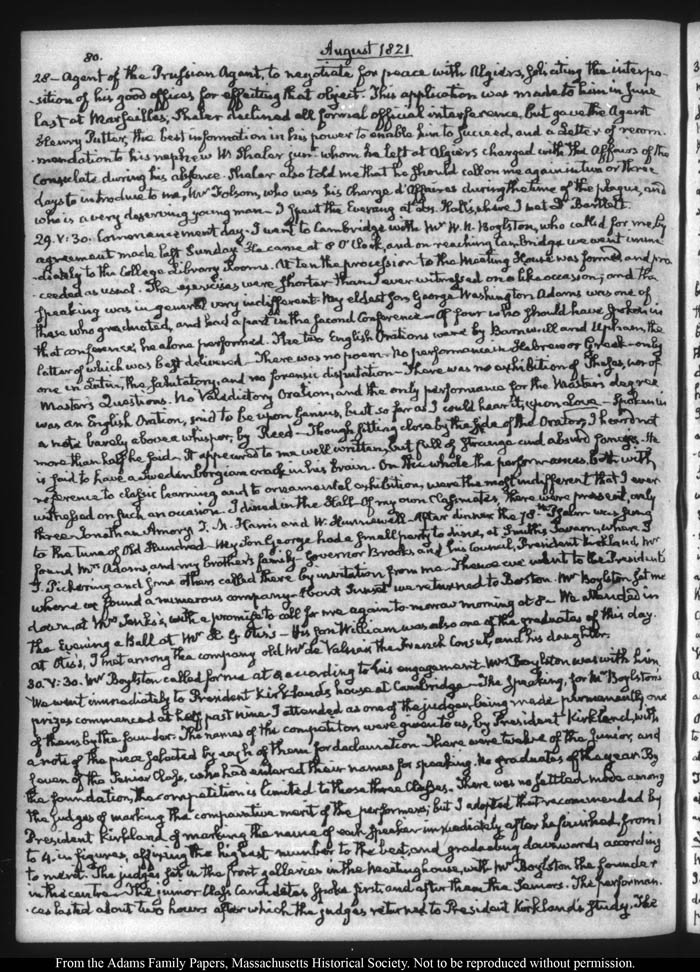 80.
August 1821
28 - Agent of the Prussian Agent, to negotiate for peace with Algiers, soliciting the interpo-
-sition of his good offices for effecting that object. This application was made to him in June
last at Marseilles; Shaler declined all formal official interference, but gave the Agent
Henry Putter, the best information in his power to enable him to succeed, and a Letter of recom-
-mendation to his nephew W. Shaler junr. whom he left at Algiers charged with the Affairs of the
Consulate during his absence. Shaler also told me that he should call on me again in two or three
days to introduce to me, Mr Folsom, who was his Chargé d'Affaires during the time of the plague, and
who is a very deserving young man. I spent the Evening at Dr. Hall's, where I met Dr Bartlett.
29. V:30. Commencement day. I went to Cambridge with Mr W. N. Boylston, who called for me by
agreement made last Sunday. He came at 8 O'Clock, and on reaching Cambridge we went imme-
diately to the College Library Rooms. At ten the procession to the Meeting House was formed, and pro-
ceeded as usual. The exercises were shorter than I ever witnessed on a like occasion; and the
speaking was in general very indifferent. My eldest son George Washington Adams was one of
those who graduated, and had a part in the second Conference. Of four who should have spoken in
that conference, he alone performed. The two English Orations were by Barnwell and Upham, the
latter of which was best delivered. There was no poem. No performance in Hebrew or Greek - only
one in Latin, the Salutatory, and no forensic disputation. There was no exhibition of Theses, nor of
Master's Questions. No Valedictory Oration, and the only performance for the Master's degree
was an English Oration, said to be upon Genius, but so far as I could hear it, upon Love - Spoken in
a note barely above a whisper, by Reed - Though sitting close by the side of the Orator, I heard not
more than half he said. It appeared to me well written, but full of strange and absurd fancies. He
is said to have a Swedenborgian crack in his brain. On the whole the performances, both with
reference to classic learning and to ornamental exhibition, were the most indifferent that I ever
witnessed on such an occasion. I dined in the Hall. Of my own Classmates, there were present, only
three Jonathan Amory T. M. Harris and W. Hunnewell. After dinner the 78th Psalm was sung
to the tune of Old Hundred. My Son George had a small party to dine, at Smith's Tavern, where I
found Mrs Adams, and my brother's family. Governor Brooks, and his Council, President Kirkland, Mr
T. Pickering and some others called there by invitation from me. Thence we went to the President's
where we found a numerous company. About Sunset we returned to Boston. Mr Boylston set me
down, at Mr Jenks's, with a promise to call for me again to-morrow morning at 8 - We attended in
the Evening a Ball at Mr H. G. Otis's - His son William was also one of the graduates of this day.
at Otis's, I met among the company old Mr de Valnais the French Consul, and his daughter.
30. V:30. Mr Boylston called for me at 8 according to his engagement. Mrs Boylston was with him.
We went immediately to President Kirkland's house at Cambridge. The Speaking, for Mr Boylston's
prizes commenced at half past nine. I attended as one of the judges, being made permanently one
of them by the founder. The names of the competitors were given to us, by President Kirkland, with
a note of the piece selected by each of them for declamation. There were twelve of the Junior, and
seven of the Senior Class, who had entered their names for speaking. No graduates of the year. By
the foundation, the competition is limited to those three Classes. There was no settled mode among
the judges of marking the comparative merit of the performers; but I adopted that recommended by
President Kirkland of marking the name of each Speaker immediately after he finished, from 1
to 4. in figures, affixing the highest number to the best, and graduating downwards according
to merit. The judges sit in the front galleries in the Meeting house, with Mr Boylston the founder
in the centre. The junior Class candidates spoke first, and after them the Seniors. The performan-
-ces lasted about two hours after which the judges returned to President Kirkland's study. The
From the Adams Family Papers, Massachusetts Historical Society. Not to be reproduced without permission.